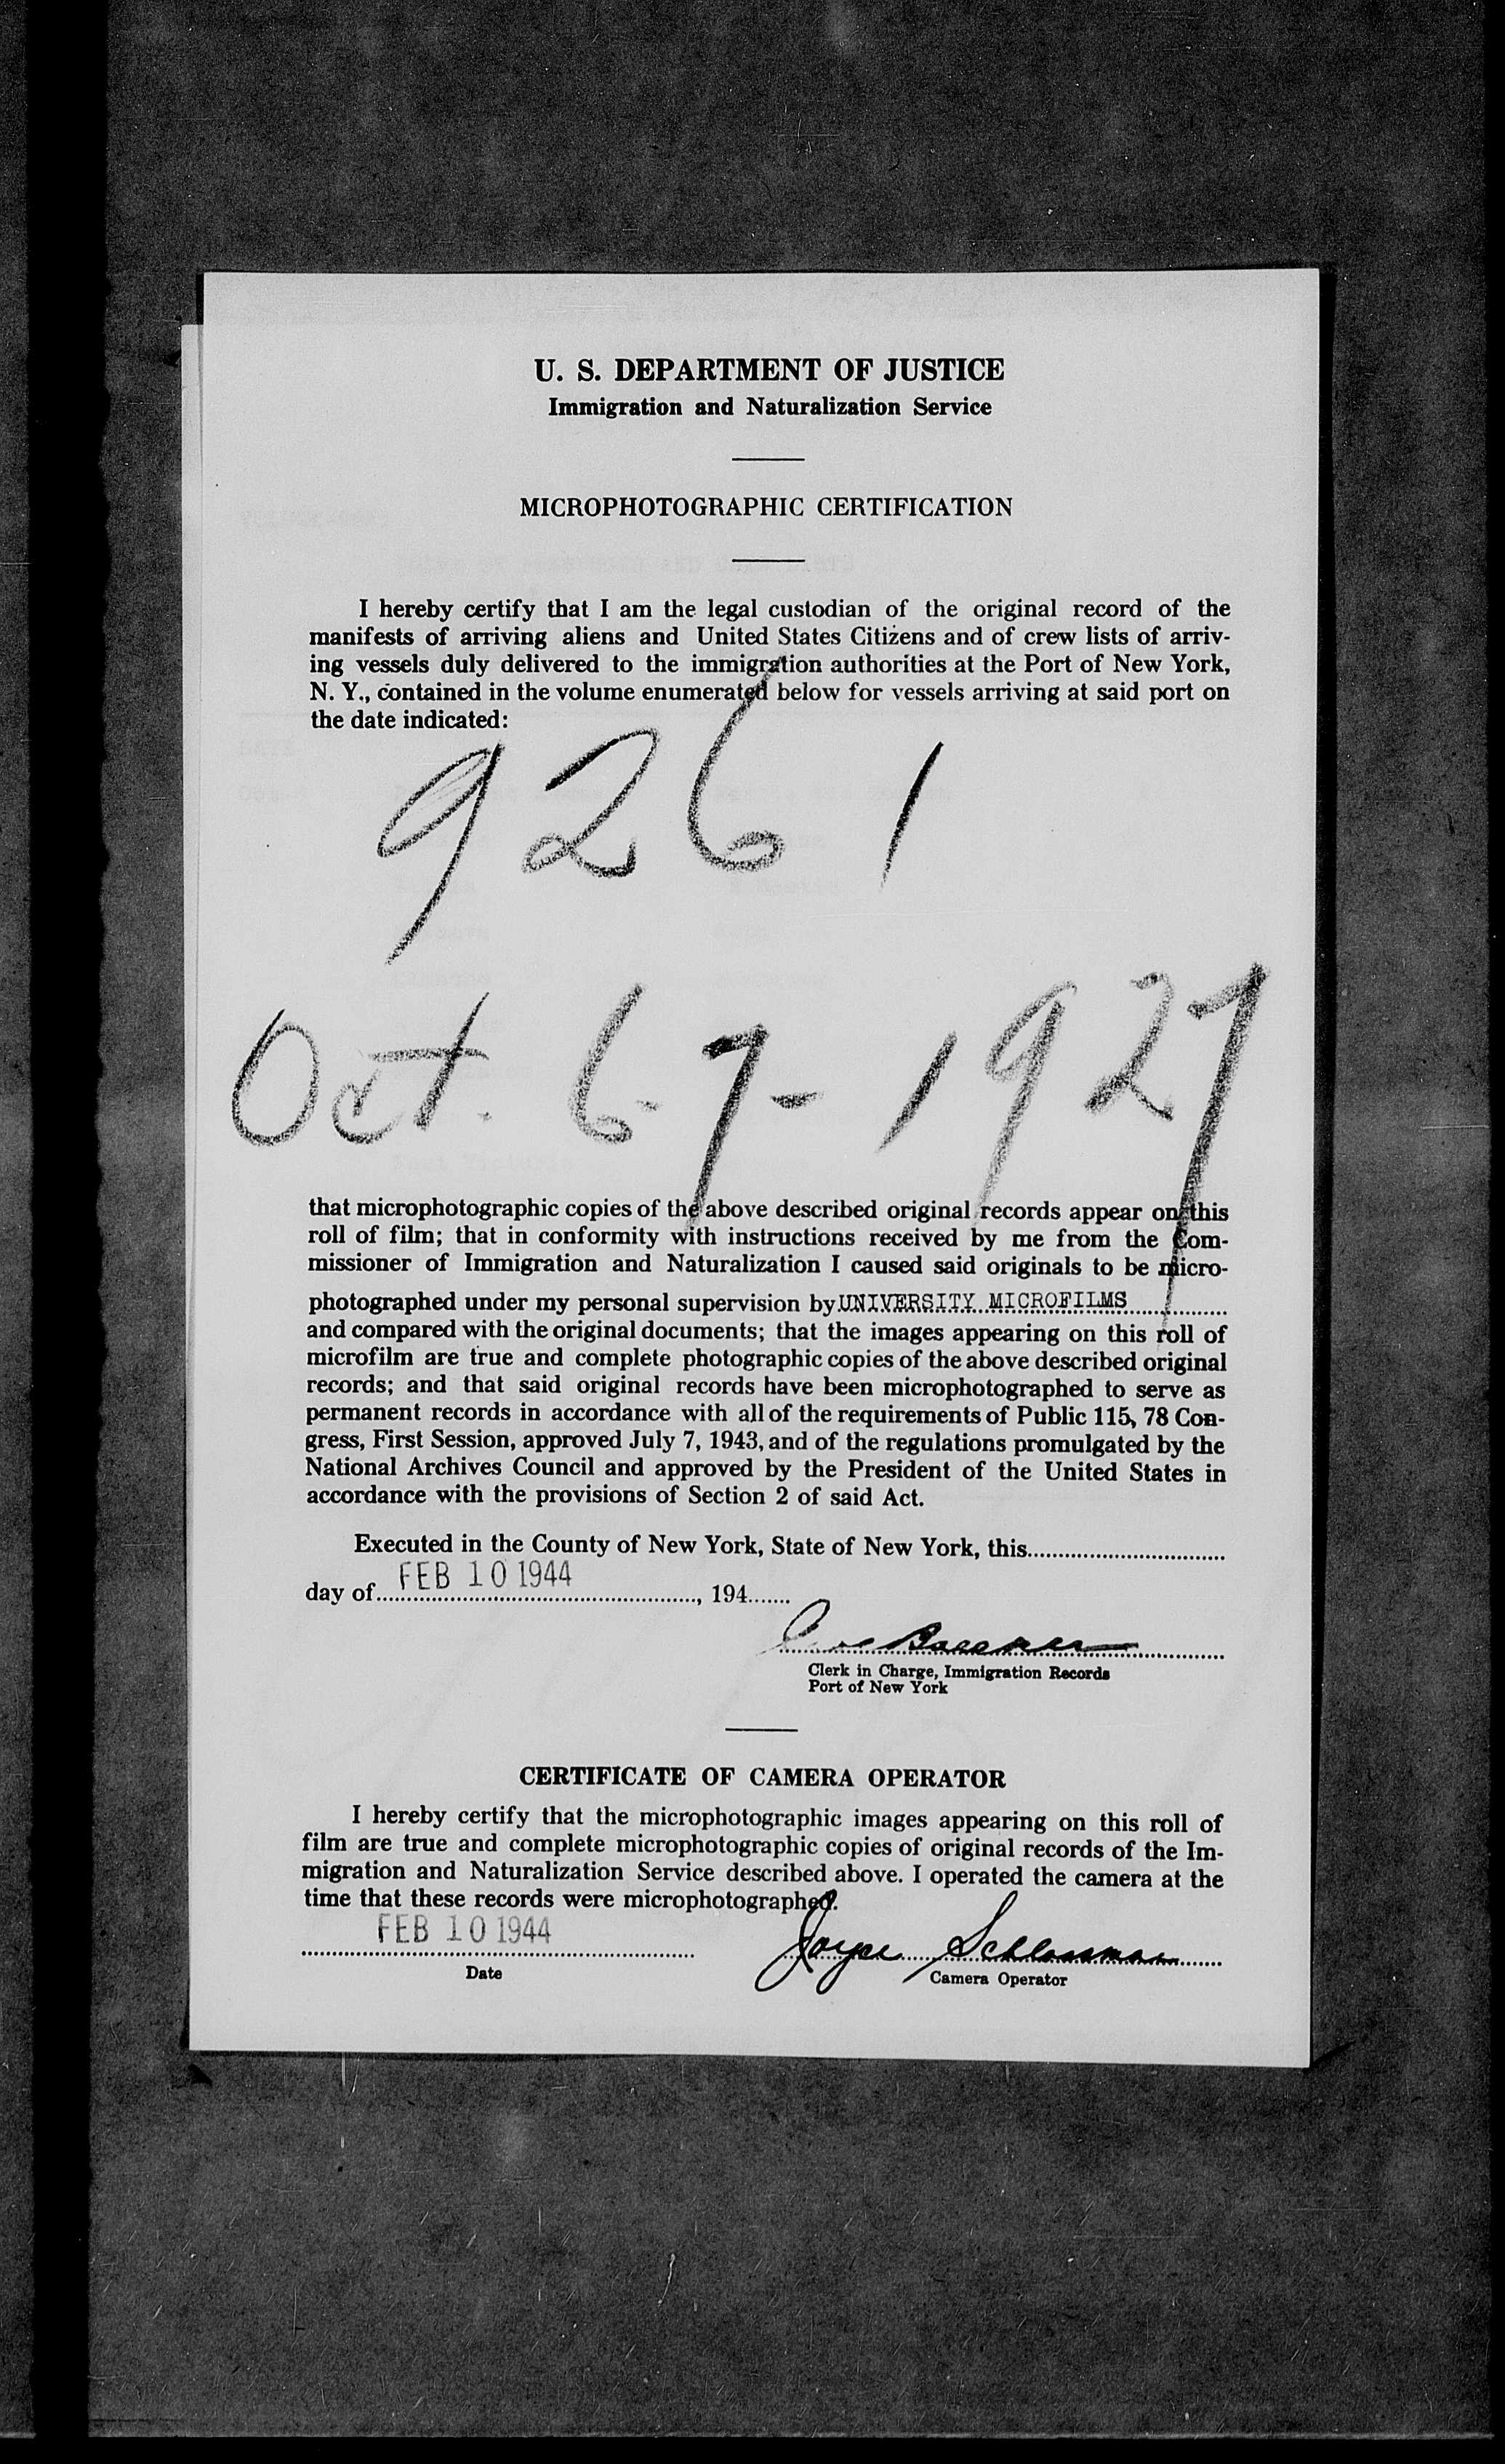 U. S. DEPARTMENT OF JUSTICE
Immigration and Naturalization Service
MICROPHOTOGRAPHIC CERTIFICATION
I hereby certify that I am the legal custodian of the original record of the
manifests of arriving aliens and United States Citizens and of crew lists of arriv-
ing vessels duly delivered to the immigration authorities at the Port of New York,
N. Y., contained in the volume enumerated below for vessels arriving at said port on
the date indicated:
9261
Oct. 6-7-1927
that microphotographic copies of the above described original records appear on this
roll of film; that in conformity with instructions received by me from the Com-
missioner of Immigration and Naturalization I caused said originals to be micro-
photographed under my personal supervision by UNIVERSITY MICROFILMS
and compared with the original documents; that the images appearing on this roll of
microfilm are true and complete photographic copies of the above described original
records; and that said original records have been microphotographed to serve as
permanent records in accordance with all of the requirements of Public 115, 78 Con-
gress, First Session, approved July 7, 1943, and of the regulations promulgated by the
National Archives Council and approved by the President of the United States in
accordance with the provisions of Section 2 of said Act.
Executed in the County of New York, State of New York, this
day of FEB 10 1944, 194
Clerk in Charge, Immigration Records
Port of New York
CERTIFICATE OF CAMERA OPERATOR
I hereby certify that the microphotographic images appearing on this roll of
film are true and complete microphotographic copies of original records of the Im-
migration and Naturalization Service described above. I operated the camera at the
time that these records were microphotographed.
FEB 10 1944 Joyce Schlossman
Date Camera Operator